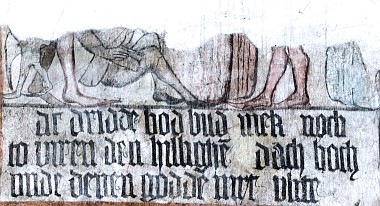 ar dridde bod bud mek noch
to viren den hillighē dach hoch
unde denen godde met vlite